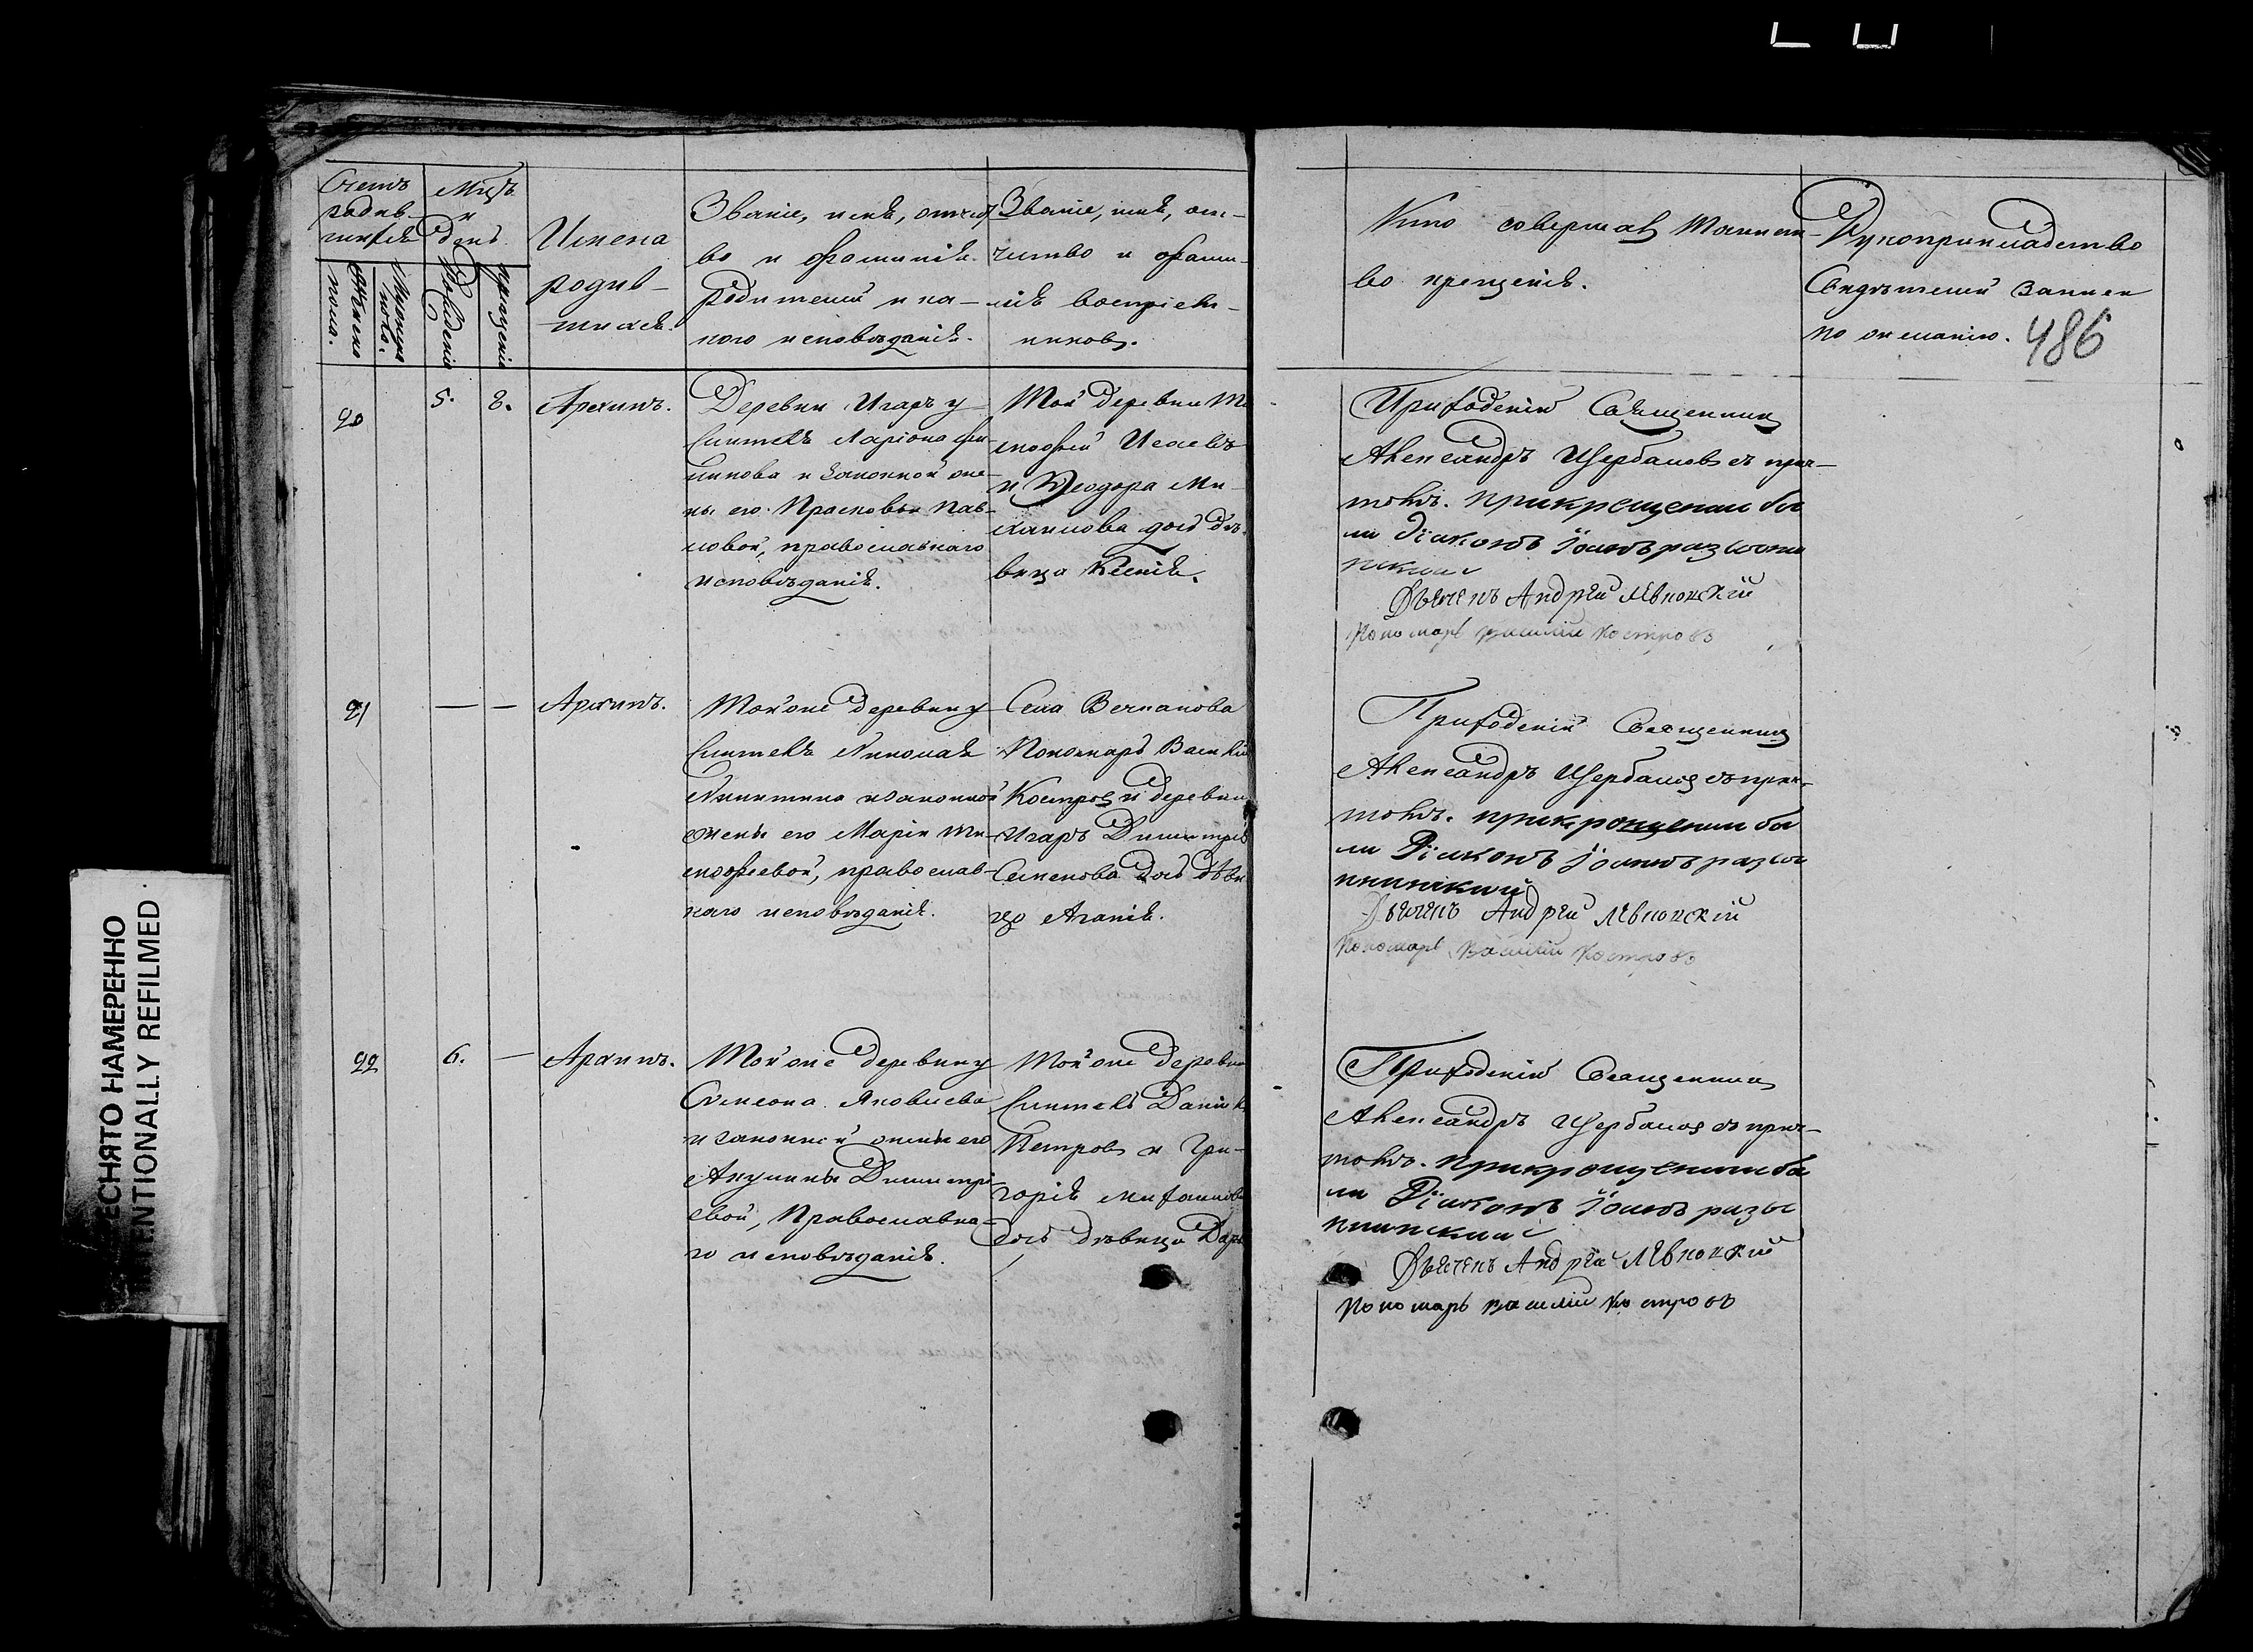 Счетъ родив-шихся
Мужеска пола.
Женска пола.
Мцъ и день
Рожденія
Крещенія
Имена родив-шихся.
Званіе, имя, отчест-
во и фамилія
родителей и ка-
кого исповѣданія.
Званіе, имя, от-
чество и фами-
лія воспріем-
никовъ.
Кто совершалъ таинст-
во крещенія.
Рукоприкладство
свидѣтелей записи
по желанію.
486
20
5. 8.
Архипъ.
Деревни Игарь у
Ларіона Фи-
липова и законной же-
ны его Прасковьи Пав-
ловой, православнаго
исповѣданія.
Той деревни Ти-
мофей Исаевъ
и Ѳеодора Ми-
хаилова дочь дѣ-
вица Ксенія.
Приходскій Священникъ
Александръ Щербаковъ съ прич-
томъ. При крещеніи бы
ли Діаконъ Іоаннъ
Дьячекъ Андрей
Пономарь Василій Костровъ
21
— —
Архипъ.
Той же деревни у
Николая
Никитина и законной
жены его Маріи Ти-
мофеевой, православ-
наго исповѣданія.
Села
Пономарь Василій
Костровъ и деревни
Игарь Димитрія
Семенова дочь дѣви
ца Агапія.
Приходскій Священникъ
Александръ Щербаковъ съ прич-
томъ. При крещеніи бы
ли Діаконъ Іоаннъ
Дьячекъ Андрей
Пономарь Василій Костровъ
22
6. —
Архипъ.
Той же деревни у
Симеона Яковлева
и законной жены его
Акулины Димитрі-
евой, Православна-
го исповѣданія.
Той же деревни
Данилъ
Петровъ и Гри-
горія Михаилова
дочь дѣвица Дарья
Приходскій Священникъ
Александръ Щербаковъ съ прич-
томъ. При крещеніи бы
ли Діаконъ Іоаннъ
Дьячекъ Андрей
Пономарь Василій Костровъ
ЕСНЯТО НАМЕРЕННО
ENTIONALLY REFILMED